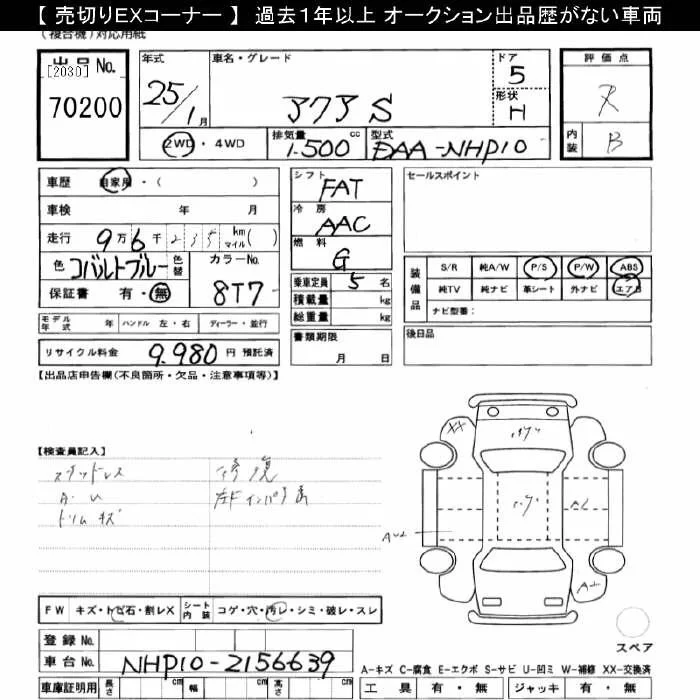 【 売切りEXコーナー 】 過去1年以上 オークション出品歴がない車両
(複合機)対応用紙
出品No. [2030] 70200
年式 25/1月
車名・グレード アクア S
ドア 5
形状 H
評価点 R
内装 B
2WD・4WD
排気量 1.500 cc
型式 DAA-NHP10
車歴 自家用・( )
車検 年 月
走行 9万6千235 km マイル( )
色 コバルトブルー 色替 カラーNo. 8T7
保証書 有・無
シフト FAT
冷房 AAC
燃料 G
乗車定員 5 名
積載量 kg
総重量 kg
セールスポイント
装備品 S/R 純A/W P/S P/W ABS
純TV 純ナビ 革シート 外ナビ エアB
ナビ型番:
モデル年式 年 ハンドル 左・右 ディーラー・並行
書類期限 月 日
後日品
リサイクル料金 9.980 円 預託済
【出品店申告欄(不良箇所・欠品・注意事項等)】
【検査員記入】
スタッドレス 修復
A・U 左F インパネ
ドリム キズ
XX
A
AU2
A
FW キズ・トビ石・割レX シート内装 コゲ・穴・汚レ・シミ・破レ・スレ
スペア
登録No.
車台No. NHP10-2156639
A-キズ C-腐食 E-エクボ S-サビ U-凹ミ W-補修 XX-交換済
車庫証明用 長さ cm 幅 cm 高さ cm 工具 有・無 ジャッキ 有・無